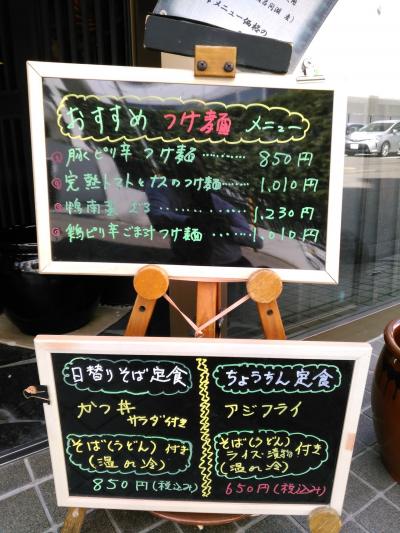 メニュー価格の
おすすめ つけ麺 メニュー
① 豚ピリ辛 つけ麺………… 850円
② 完熟トマトとナスのつけ麺……… 1,010円
③ 鴨南蛮 ………… 1,230円
④ 鶏ピリ辛ごま汁つけ麺 ……… 1,010円
日替りそば定食
かつ丼
サラダ付き
そば(うどん) 付き
(温or冷)
850円(税込み)
ちょうちん定食
アジフライ
そば(うどん)
ライス・漬物 付き
(温or冷)
650円(税込み)